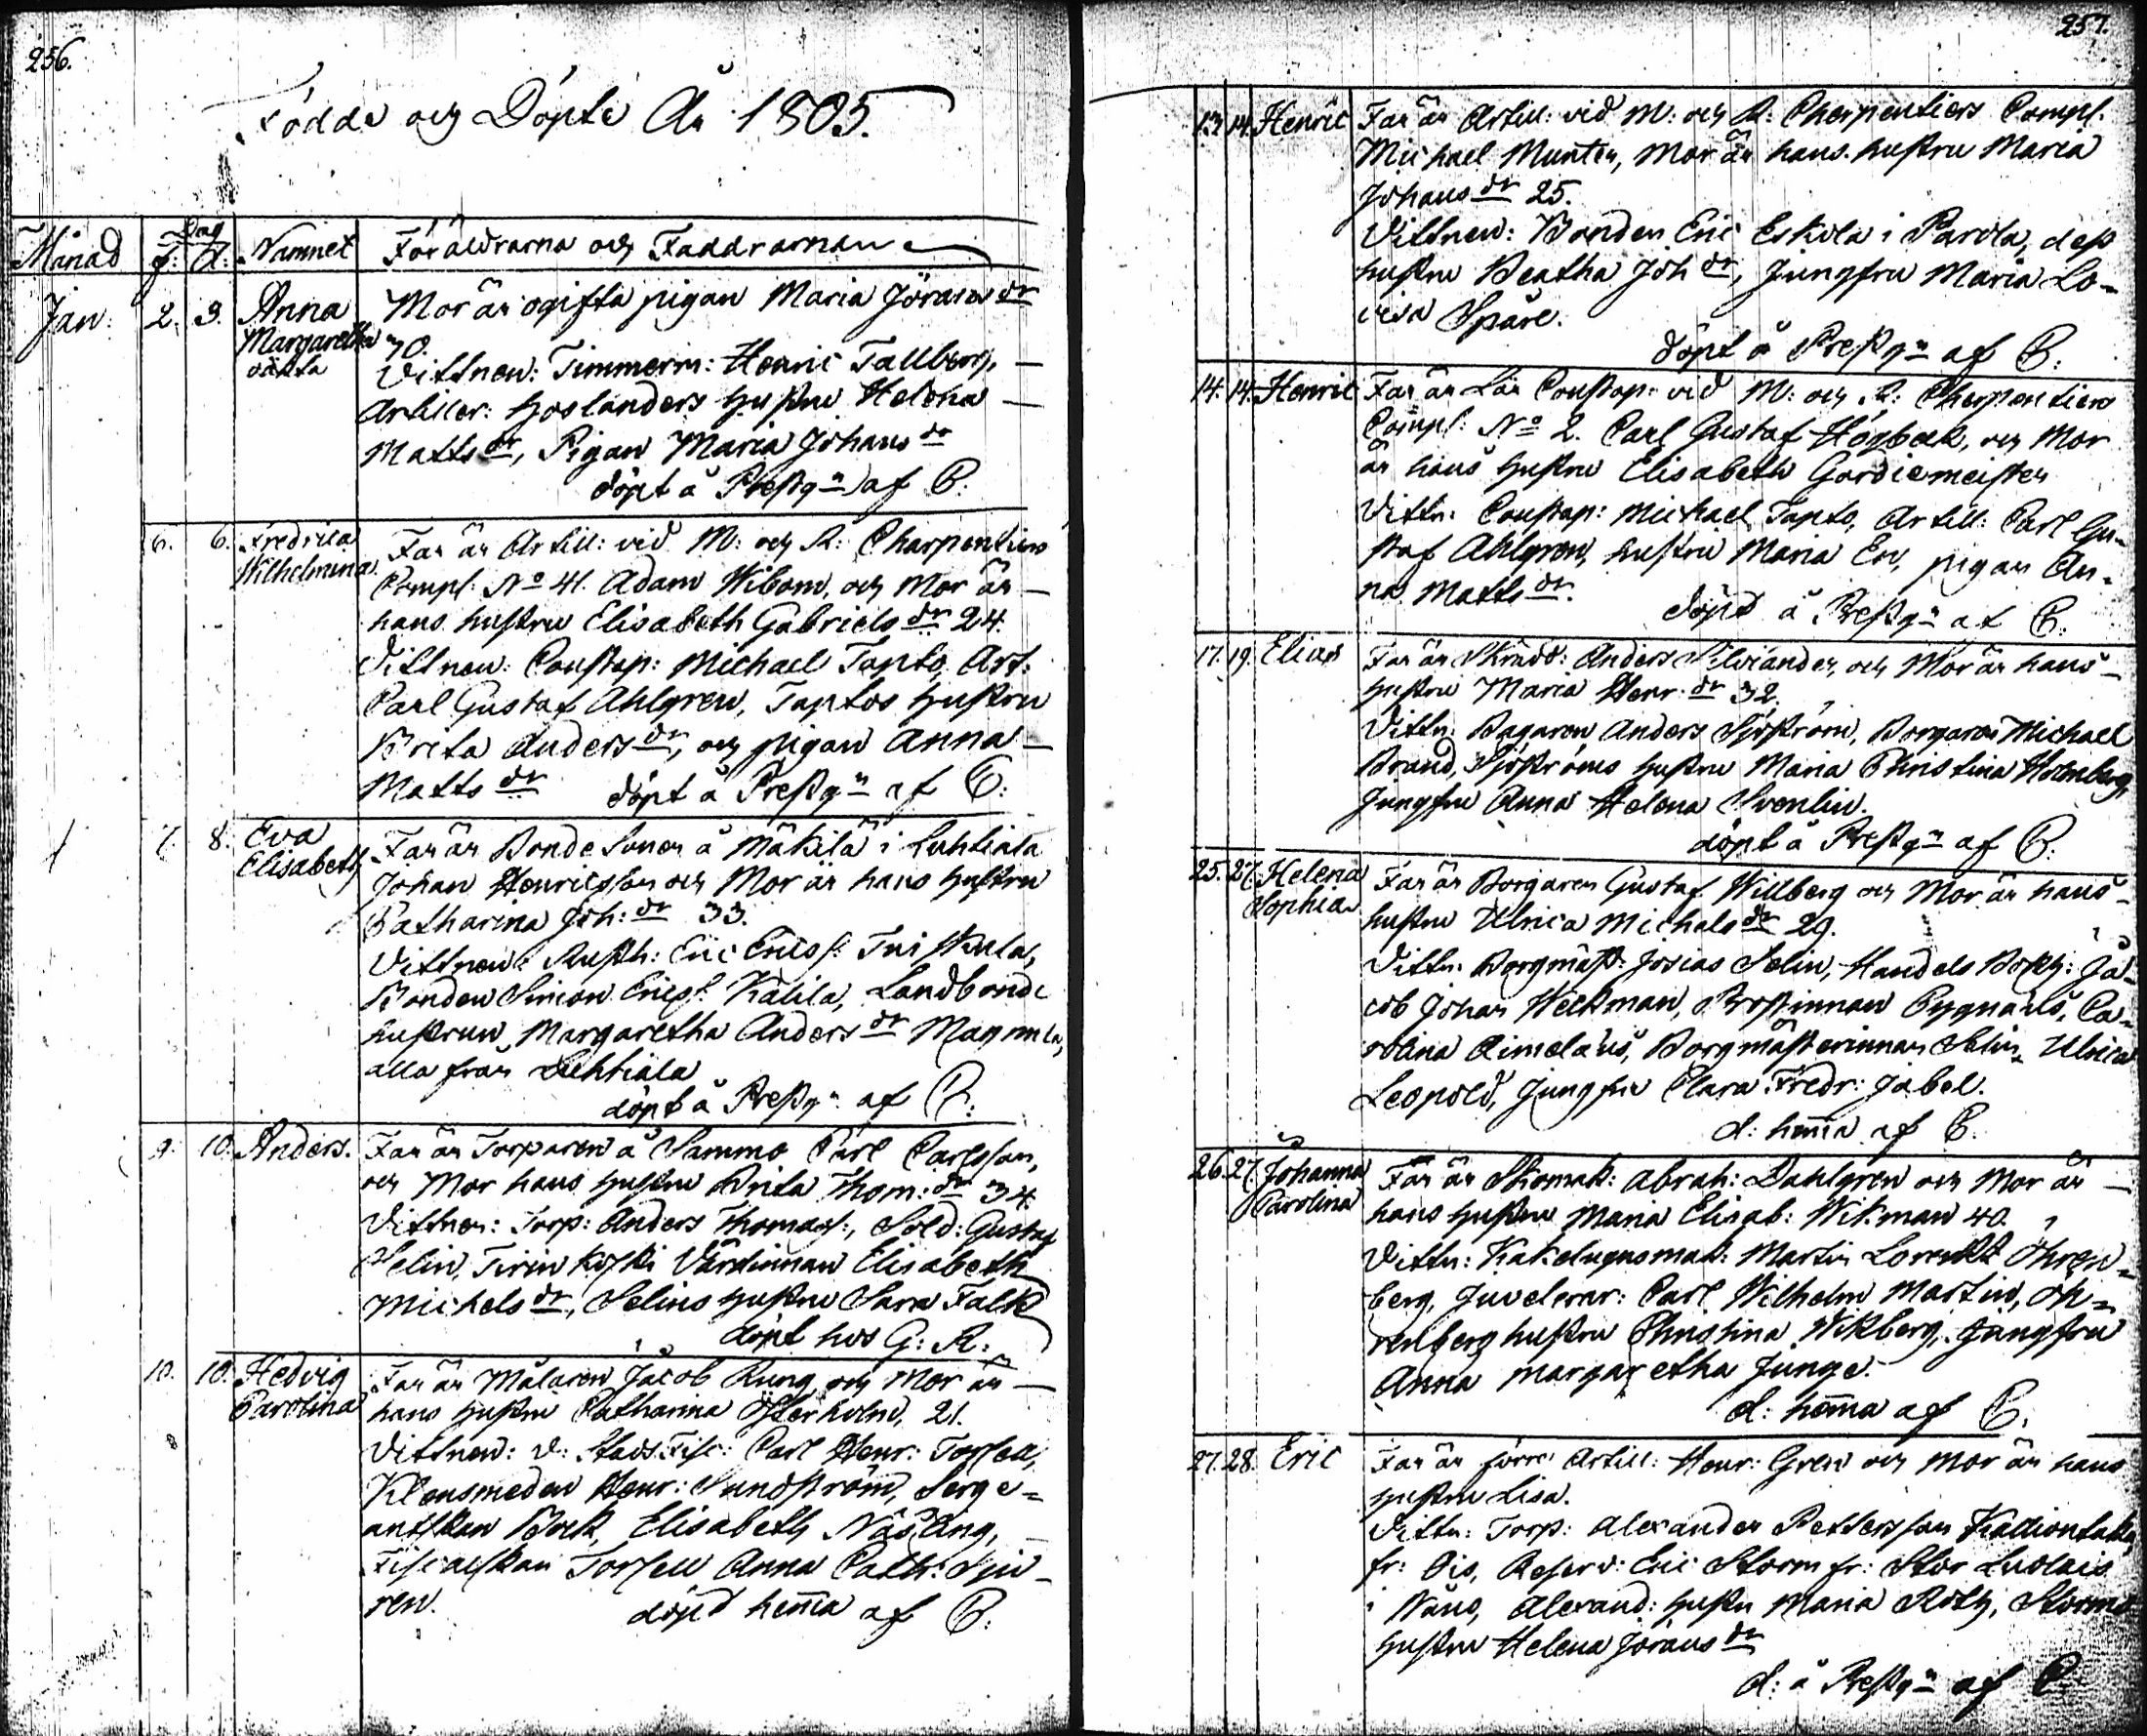 256.
Födde och Döpte År 1805.
Månad Dag f: d: Namnet Föräldrarna och Faddrarna
Jan: 2. 3. Anna Margaretha oäkta
Mor är ogifta pigan Maria Jörans dr
30.
Vittnen: Timmerm: Henric Tallberg,
Artiller: Hoslanders hustru Helena
Matts dr, Pigan Maria Johans dr
döpt å Prestgn af C.
6. 6. Fredrica Wilhelmina
Far är Artill: vid M: och R: Charpentiers
Compl. No 41. Adam Wibom, och Mor är
hans hustru Elisabeth Gabriels dr 24.
Vittnen: Constap: Michael Tapto, Art:
Carl Gustaf Ahlgren, Taptos hustru
Brita Anders dr, och pigan Anna
Matts dr döpt å Prestgn af C:
7. 8. Eva Elisabeth
Far är Bonde Sonen å Mäkilä i Luhtiala
Johan Henricsson och Mor är hans hustru
Catharina Joh: dr 33.
Vittnen: Rusth: Eric Ericss:
Bonden Simon Ericss: Kälilä, Landbonde
hustrun Margaretha Anders dr
alla från Luhtiala
döpt å Prestgn af C:
9. 10. Anders.
Far är Torparen å Sammo Carl Carlsson,
och Mor hans hustru Brita Thom: dr 34.
Vittnen: Torp: Anders Thomass:, Sold: Gustaf
Selin, Tirinkoski Värdinnan Elisabeth
Michels dr, Selins hustru Sara Falk
döpt hos G: R:
10. 10. Hedvig Carolina
Far är Målaren Jacob Rung och Mor är
hans hustru Catharina Österholm, 21.
Vittnen: v: Stads Fisc: Carl Henr: Torsell,
Klensmeden Henr: Sundström, Serge=
antskan Bock, Elisabeth Näsling,
Fiscalskan Torsell Anna Cath:
ren. döpd hemma af C:
257.
13. 14. Henric
Far är Artill: vid M: och R: Cherpentiers Compl.
Michael Munter, Mor är hans hustru Maria
Johans dr 25.
Vittnen: Bonden Eric Eskola i Parola, dess
hustru Beatha Joh dr, Jungfru Maria Lo=
visa Spåre.
döpt å Prestgn af C:
14. 14. Henric
Far är Lär Constap: vid M: och R: Cherpentiers
Compl: No 2. Carl Gustaf Högbeck, och Mor
är hans hustru Elisabeth Gordiemeister
Vittn: Constap: Michael Tapto, Artill: Carl Gu=
staf Ahlgren, hustru Maria Ek, pigan An=
na Matts dr.
döpd å Prestgn af C:
17. 19. Elias
Far är Skrädd: Anders Silviander, och Mor är hans
hustru Maria Henr: dr 32.
Vittn: Bagaren Anders Sjöström, Borgaren Michael
Brand, Sjöströms hustru Maria Christina Holmberg,
Jungfru Anna Helena Svenlin.
döpt å Prestgn af C:
25. 27. Helena Sophia
Far är Borgaren Gustaf Willberg och Mor är hans
hustru Ulrica Michels dr 29.
Vittn: Borgmäst: Josias Selin, Handels Bokh: Ja=
cob Johan Weckman, Prostinnan Cygnæus, Ca=
rolina Aimelæus, Borgmästerinnan Selin, Ulrica
Leopold, Jungfru Clara Fredr: Jabel.
d: hemma af C.
26. 27. Johanna Carolina
Far är Skomak: Abrah: Dahlgren och Mor är
hans hustru Maria Elisab: Wikman 40.
Vittn: Kakelugnsmak: Martin Lorentz Öhren=
berg, Juvelerar: Carl Wilhelm Martin, Öh=
renberg hustru Christina Wikberg, Jungfru
Anna Margaretha Junge.
d: hemma af C.
27. 28. Eric
Far är förre Artill: Henr: Gren och Mor är hans
hustru Lisa.
Vittn: Torp: Alexander Pettersson
fr: Ois, Reserv: Eric Storm fr: Stor Luolais
i Näns, Alexand: hustru Maria Roth, Storms
hustru Helena Jörans dr
d: å Prestgn af C